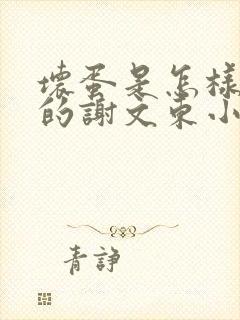 壞蛋是怎樣
的謝文東小
青諍